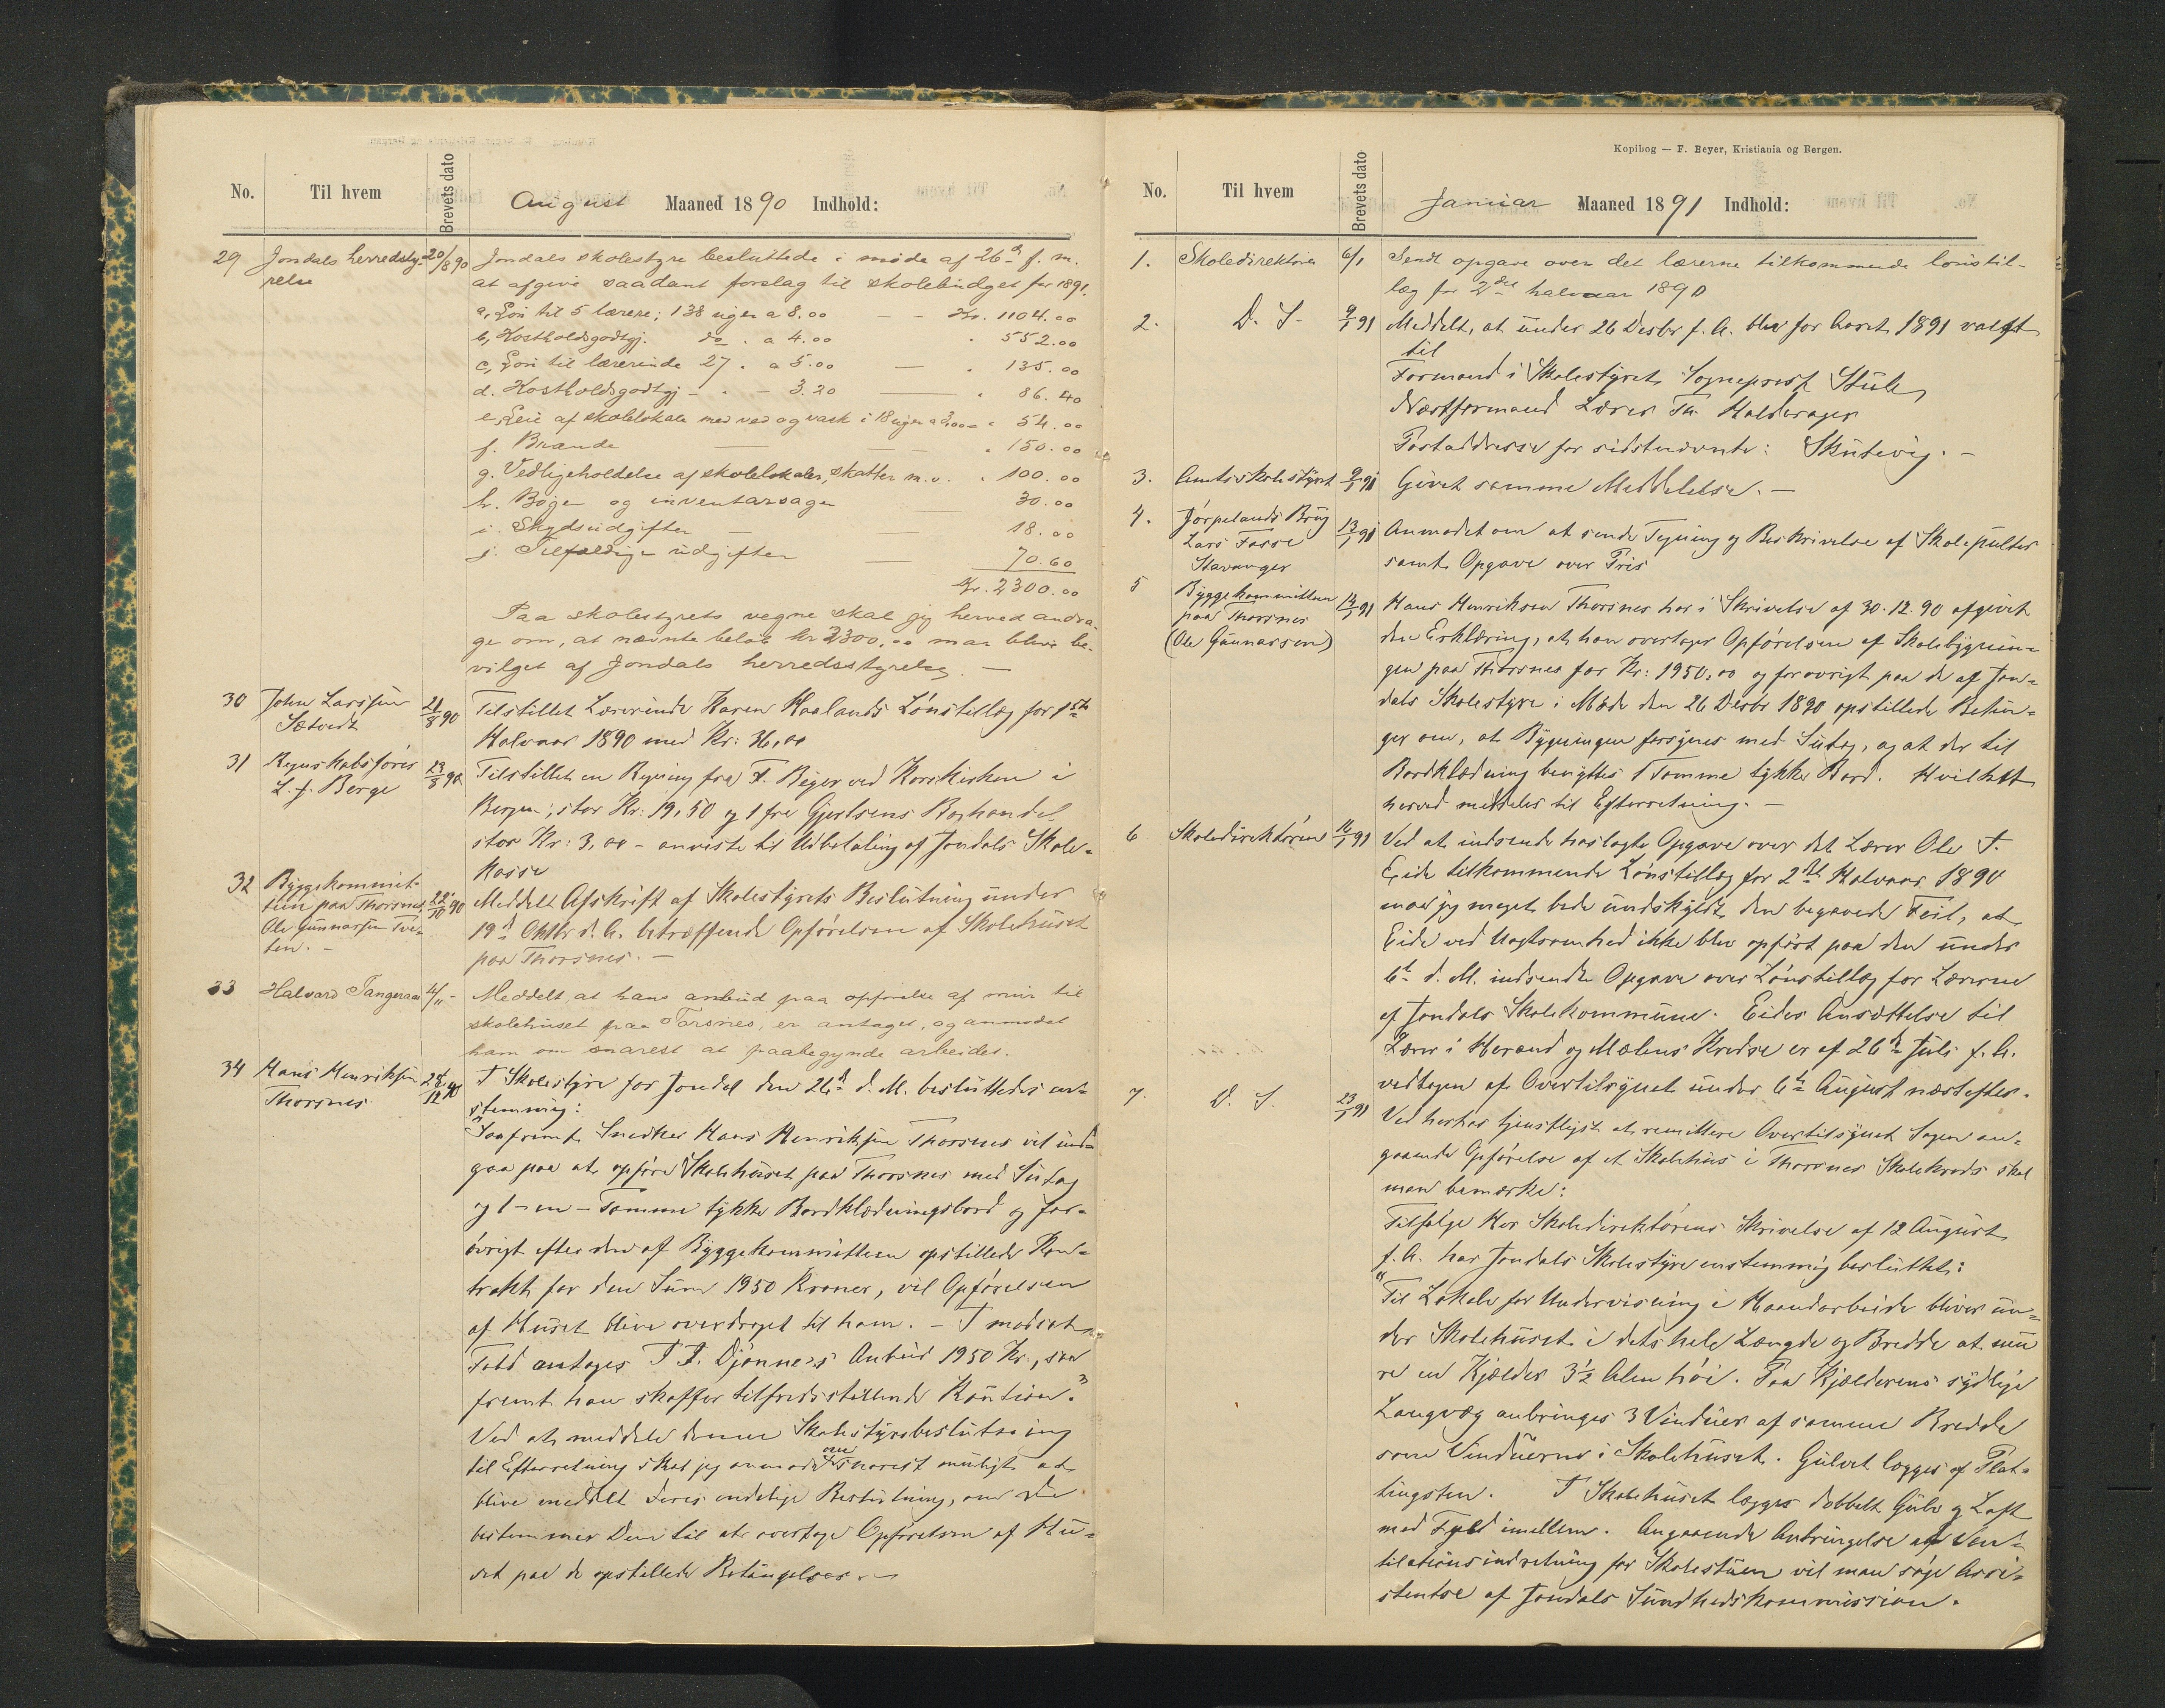 No. Til hvem Brevets dato August Maaned 1890 Indhold:
29 Jondals herredsty- 20/8 90 Jondals skolestyre besluttede i møde af 26de f. m.
relse at afgive saadant forslag til skolebudget for 1891.
a, Løn til 5 lærere; 138 uger a 8.00 — — Kr. 1104.00
b, Kostholdsgodtgj. do . a 4.00 " 552.00
c, Løn til lærerinde 27 " a 5.00 — " 135.00
d. Kostholdsgodtgj — " — 3.20 — " 86.40
e, Leie af skolelokale med ved og vask i 18 uger a 3,00 " 54.00
f. Brænde — — " 150.00
g. Vedligeholdelse af skolelokaler, skatter m.v. " 100.00
h. Bøger og inventarsager 30.00
i. Skydsudgifter — — 18.00
j. Tilfældige udgifter — 70.60
Kr. 2300.00
Paa skolestyrets vegne skal jeg herved andra-
ge om, at nævnte beløb kr 2300,00 maa blive be-
vilget af Jondals herredsstyrelse. —
30 John Larssen 21/8 90 Tilstillet Lærerinde Karen Haalands Lønstillæg for 1ste
Sætvedt Halvaar 1890 med Kr: 36,00
31 Regnskabsfører 23/8 90 Tilstillet en Regning fra F. Beyer ved Korskirken i
L. J. Berge Bergen, stor Kr: 19,50 og 1 fra Gjertsens Boghandel
stor Kr: 3,00 – anviste til Udbetaling af Jondals Skole-
kasse
32 Byggekommit- 22/10 90 Meddelt Afskrift af Skolestyrets Beslutning under
teen paa Thorsnes 19de Oktbr d. A. betræffende Opførelsen af Skolehuset
Ole Gunnarsen Tve- paa Thorsnes. —
ten. —
33 Halvard Tangeraas 4/11 – Meddelt, at hans anbud paa opførelse af mur til
skolehuset paa Torsnes, er antaget, og anmodet
ham om snarest at paabegynde arbeidet.
34 Hans Henriksen 12 90 I Skolestyre for Jondal den 26de d. M. besluttedes en-
Thorsnes stemmig:
"Saafremt Snedker Hans Henriksen Thorsnes vil ind-
gaa paa at opføre Skolehuset paa Thorsnes med Sutag
og 1 – en – Tomme tykke Bordklædningsbord og for-
øvrigt efter den af Byggekommitteen opstillede Kon-
trakt for den Sum 1950 Kroner, vil Opførelsen
af Huset blive overdraget til ham. – I modsat
Fald antages T. T. Djønne's Anbud 1950 Kr., saa
fremt han skaffer tilfredsstillende Kaution."
Ved at meddele denne Skolestyrebeslutning
til Efterretning skal jeg anmode om snarest muligt at
blive meddelt Deres endelige Beslutning, om De
bestemmer Dem til at overtage Opførelsen af Hu-
set paa de opstillede Betingelser. —
Kopibog — F. Beyer, Kristiania og Bergen.
No. Til hvem Brevets dato Januar Maaned 1891 Indhold:
1. Skoledirektøren 6/1 Sendt opgave over det lærerne tilkommende lønstil-
læg for 2det halvaar 1890
2. D. S. 9/1 91 Meddelt, at under 26 Desbr f. A. blev for Aaret 1891 valgt
til
Formand i Skolestyret Sogneprest Stub,
Næstformand Lærer Th. Haldorager
Postaddresse for sidstnævnte: Skutevig. —
3. Amtsskolestyret 9/1 91 Givet samme Meddelelse. —
4. Jørpelands Brug 13/1 91 Anmodet om at sende Tegning og Beskrivelse af Skolepulter
Lars Fosse samt Opgave over Pris
Stavanger
5 Byggekommitteen 14/1 91 Hans Henriksen Thorsnes har i Skrivelse af 30.12.90 afgivet
paa Thorsnes den Erklæring, at han overtager Opførelsen af Skolebygnin-
(Ole Gunnarsen) gen paa Thorsnes for Kr: 1950,00 og forøvrigt paa de af Jon-
dals Skolestyre i Møde den 26 Desbr 1890 opstillede Betin-
ger om, at Bygningen forsynes med Sutag, og at der til
Bordklædning benyttes 1 Tomme tykke Bord. Hvilket
herved meddeles til Efterretning. —
6 Skoledirektøren 16/1 91 Ved at indsende hoslagte Opgave over det Lærer Ole T.
Eide tilkommende Lønstillæg for 2det Halvaar 1890
maa jeg meget bede undskyldt den begaaede Feil, at
Eide ved Uagtsomhed ikke blev opført paa den under
6te d. M. indsendte Opgave over Lønstillæg for Lærerne
af Jondals Skolekommune. Eides Ansættelse til
Lærer i Herand og Mælens Kredse er af 26de Juli f. A.
vedtagen af Overtilsynet under 6te August næstefter.
7. D. S. 23/1 91 Ved herhos tjenstligst at remittere Overtilsynet Sagen an-
gaaende Opførelse af et Skolehus i Thorsnes Skolekreds skal
man bemærke:
Tilfølge Her Skoledirektørens Skrivelse af 12 August
f. A. har Jondals Skolestyre enstemmig besluttet:
"Til Lokale for Undervisning i Haandarbeide bliver un-
der Skolehuset i dets hele Længde og Bredde at mu
re en Kjælder 3½ Alen høi. Paa Kjælderens sydlige
Langvæg anbringes 3 Vinduer af samme Bredde
som Vinduerne i Skolehuset. Gulvet lægges af Plat-
tingsten. I Skolehuset lægges dobbelt Gulv og Loft
med Fyld imellem. Angaaende Anbringelse af Ven-
tilationsindretning for Skolestuen vil man søge Assi-
stentse af Jondals Sundhedskommission.